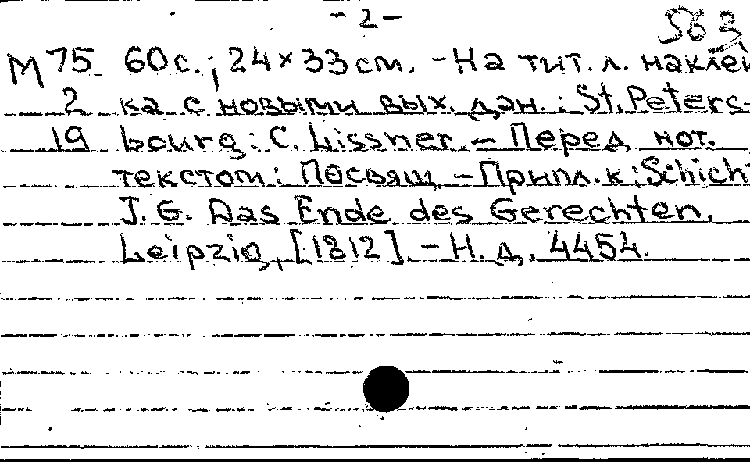 - 2 -
563
М 75 60 с.; 24 × 33 см. - На тит. л. наклей
2 ка с новыми вых. дан.: St. Peters-
19 bourg: C. Lissner. - Перед нот.
текстом: Посвящ. - Припл. к: Schicht
J. G. Das Ende des Gerechten.
Leipzig, [1812]. - Н. д. 4454.